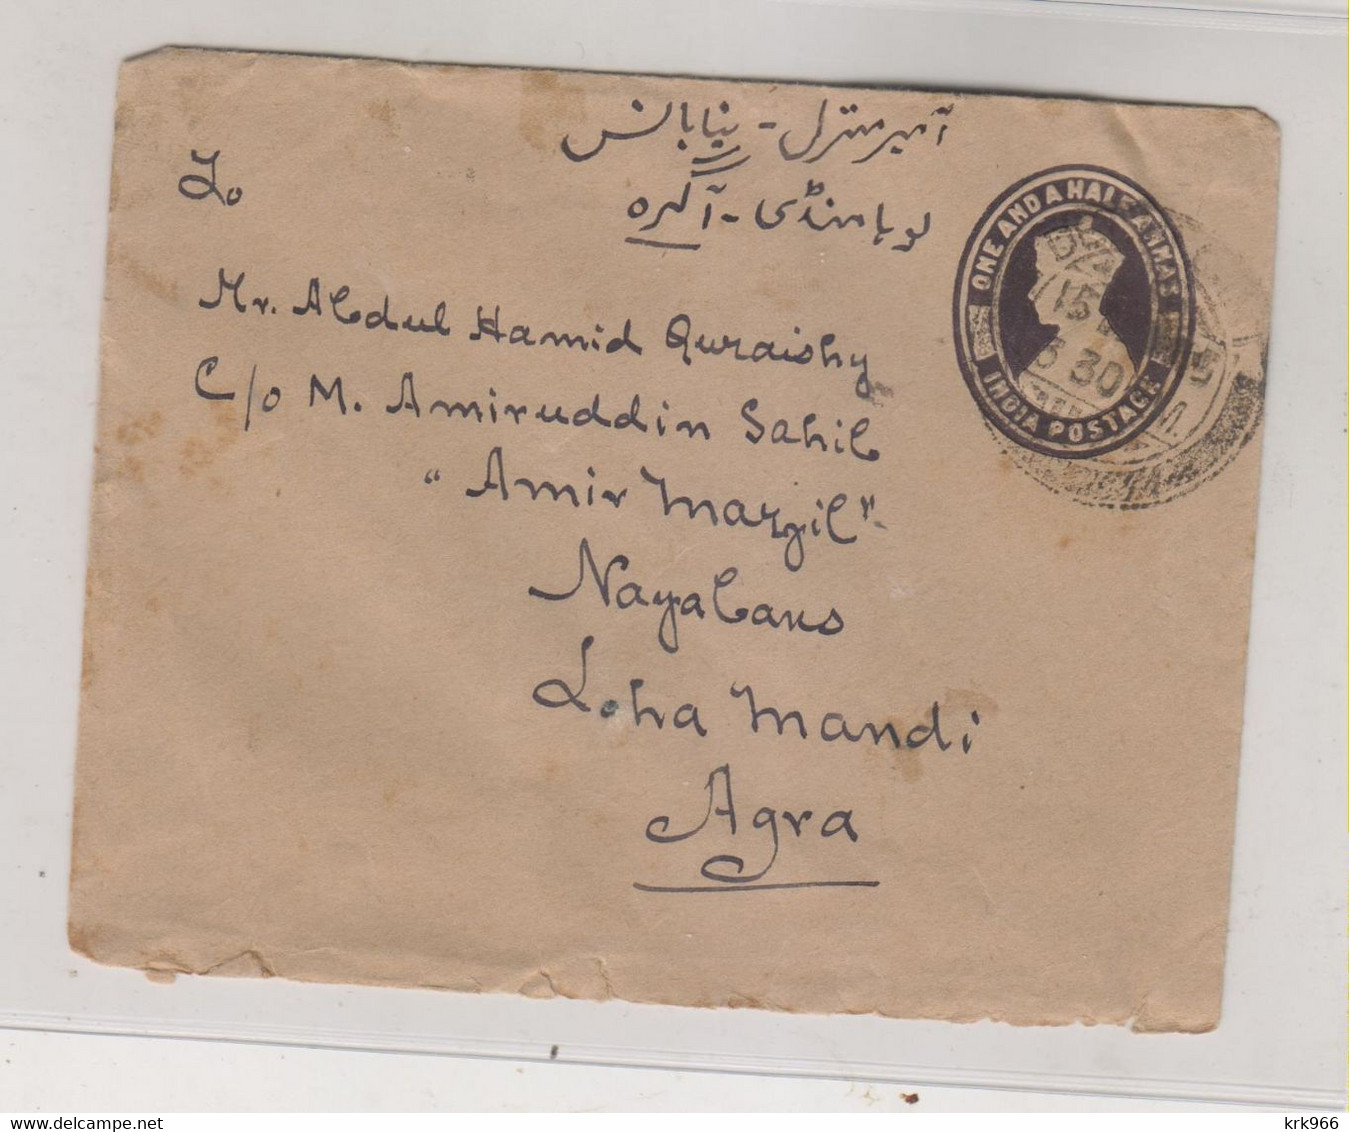 آمیر منزل - نیا بانس
لوہا منڈی - آگرہ
To
Mr. Abdul Hamid Quraishy
C/o M. Amiruddin Sahib
"Amir Manzil"
Nayabans
Loha Mandi
Agra
ONE AND A HALF ANNAS
INDIA POSTAGE
15
3 30
krk966